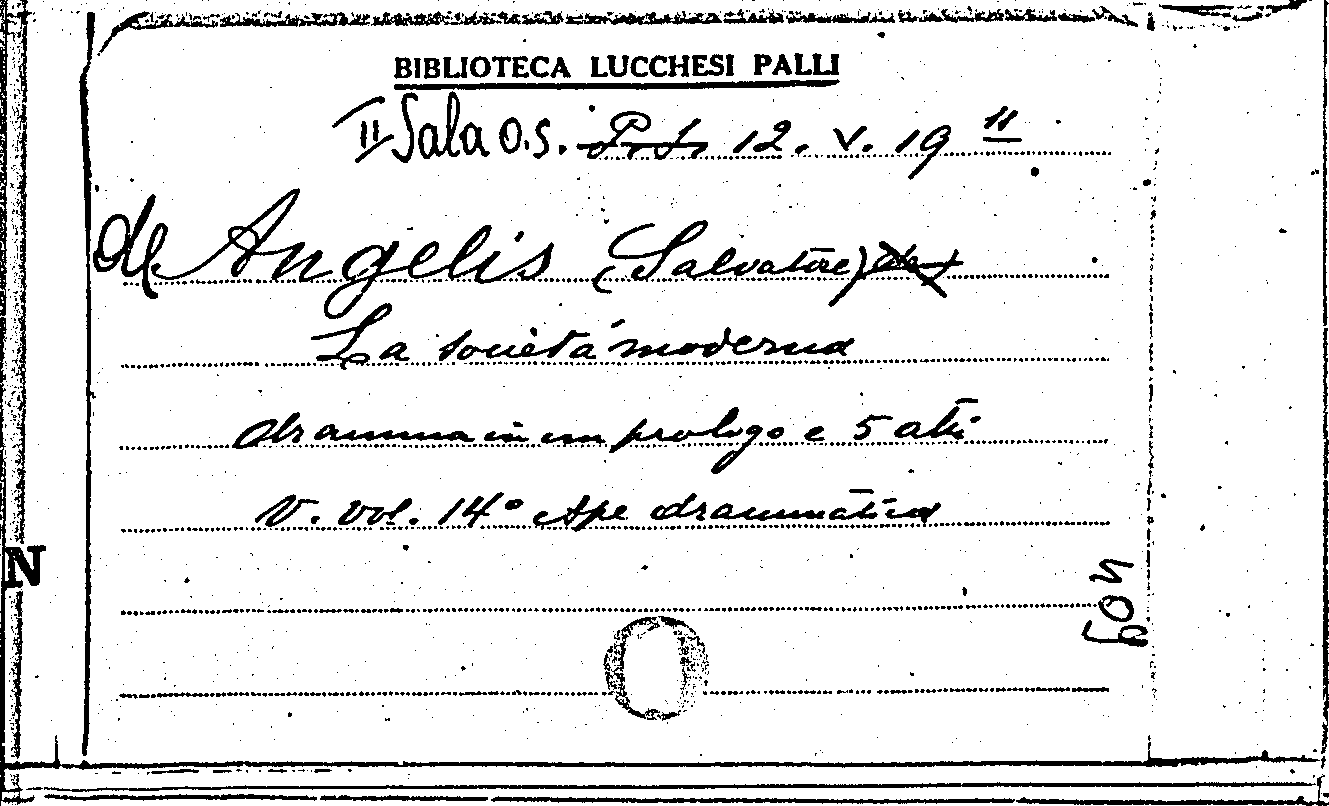 BIBLIOTECA LUCCHESI PALLI
II Sala O.S. 12. V. 19 11
de Angelis (Salvatore)
La società moderna
dramma in un prologo e 5 atti
V. vol. 14° Ape drammatica
N